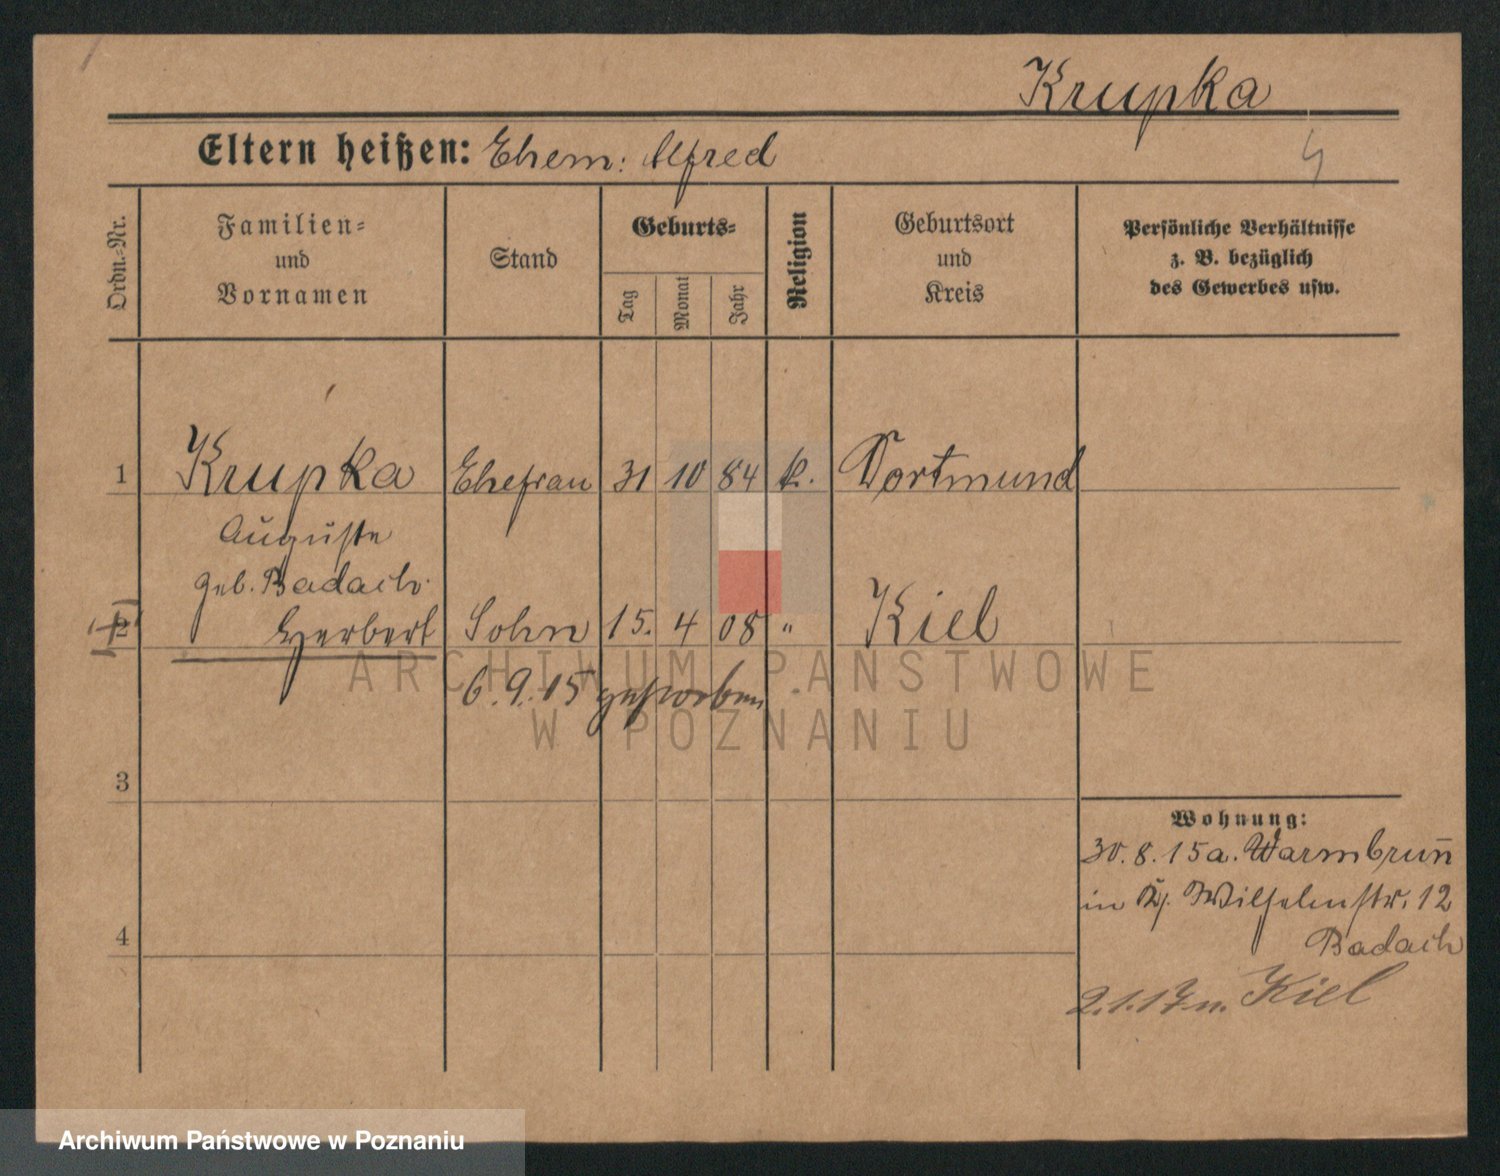 Krupka
Eltern heißen: Ehem: Alfred
Ordn.-Nr.
Familien-
und
Vornamen
Stand
Geburts-
Tag
Monat
Jahr
Religion
Geburtsort
und
Kreis
Persönliche Verhältnisse
z. B. bezüglich
des Gewerbes usw.
1 Krupka Ehefrau 31 10 84 k. Dortmund
Auguste
geb. Badach
2 Herbert Sohn 15. 4 08 " Kiel
6.9.15 gestorben
ARCHIWUM PAŃSTWOWE
W POZNANIU
3
Wohnung:
30.8.15 a. Warmbrunn̄
in Wilhelmstr. 12
4
Badach
2.1.17 n. Kiel
Archiwum Państwowe w Poznaniu